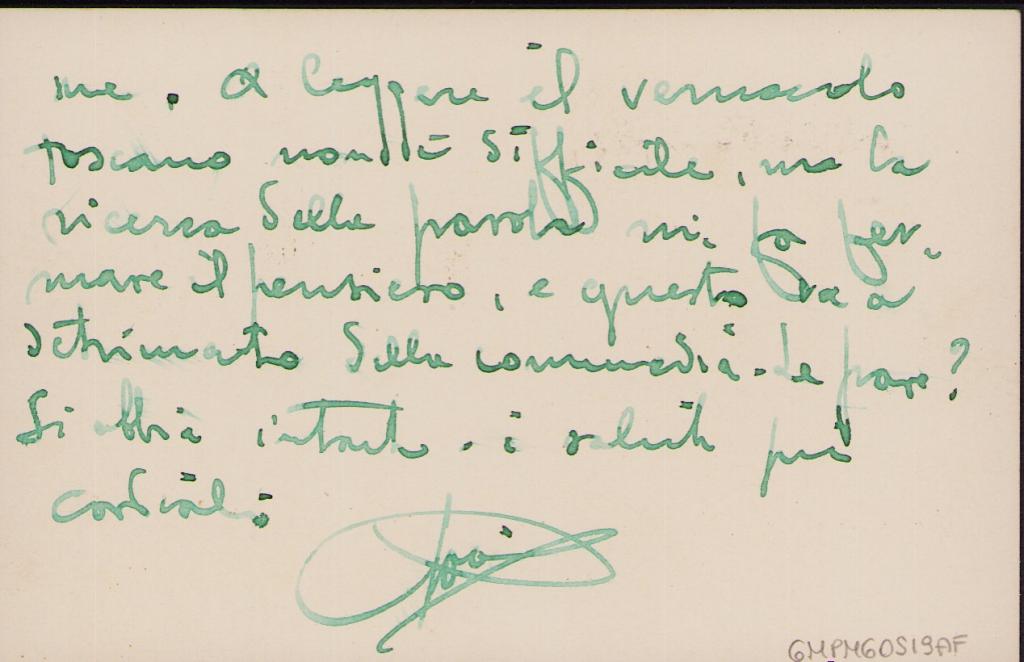 me. A leggere il vernacolo
toscano non è difficile, ma la
ricerca delle parole mi fa fer-
mare il pensiero, e questo va a
detrimento della commedia. Le pare?
Si abbia intanto i saluti più
cordiali
GMPM60S19AF